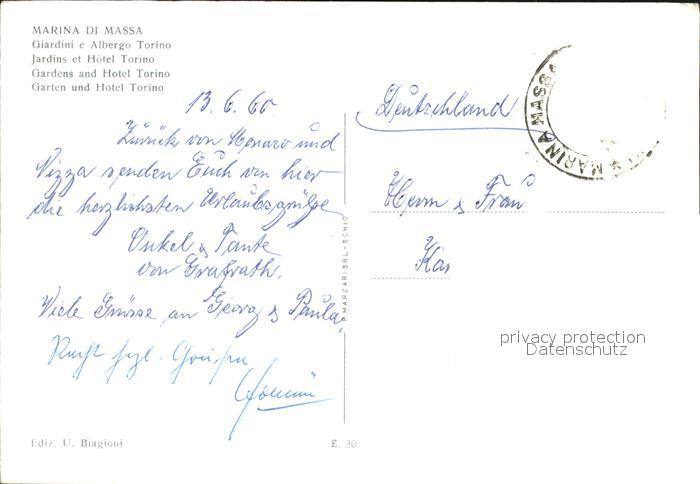 MARINA DI MASSA
Giardini e Albergo Torino
Jardins et Hôtel Torino
Gardens and Hotel Torino
Garten und Hotel Torino
13.6.60
Zurück von Monaco und
Nizza senden Euch von hier
die herzlichsten Urlaubsgrüße
Onkel & Tante
von Grafrath.
Viele Grüsse an Georg & Paula
Recht hzl.
Ediz. U. Biagioni
£. 30
MARZARI S.R.L. - SCHIO
Deutschland
MARINA MASSA
MARINA
Herrn & Frau
privacy protection
Datenschutz